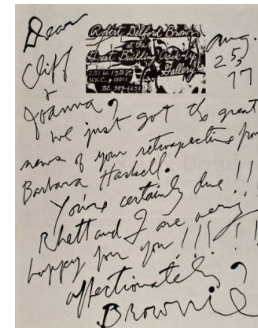 Dear
Robert Delford Brown
at the
Great Building Crack-Up
Gallery
251 W. 13th St.
N.Y.C. 10011
Aug.
25,
77
Cliff
&
Joanna,
We just got the great
news of your retrospective from
Barbara Haskell.
You're certainly due!!
Rhett and I are very
happy for you!!!!!
affectionately,
Brownie